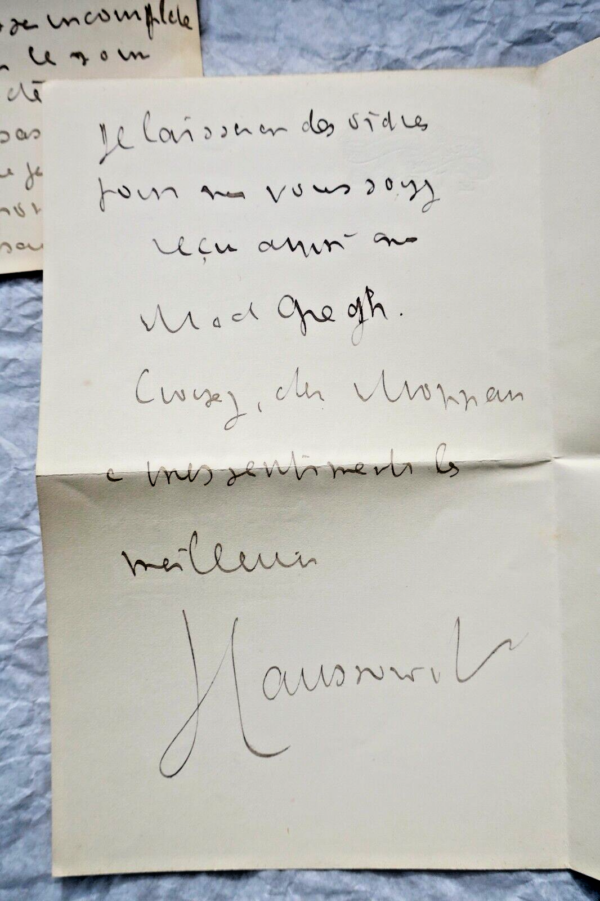 incomplète
le
pas
je
Je laisserai des ordres
pour que vous soyez
reçu ainsi que
Mad Gregh.
Croyez, cher Monsieur
à mes sentiments les
meilleurs